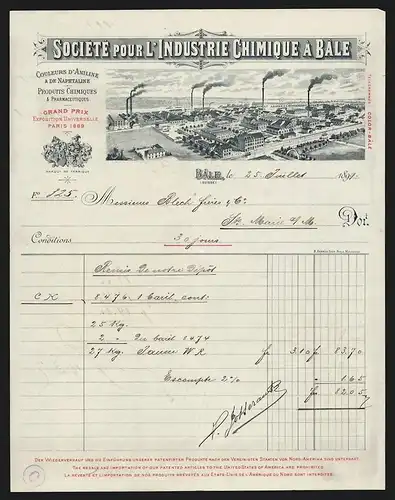 SOCIÉTÉ POUR L'INDUSTRIE CHIMIQUE À BÂLE
COULEURS D'ANILINE
& DE NAPHTALINE
PRODUITS CHIMIQUES
& PHARMACEUTIQUES
GRAND PRIX
EXPOSITION UNIVERSELLE
PARIS 1889
TELEGRAMMES: COLOR-BÂLE
MARQUE DE FABRIQUE
BÂLE, le 25 Juillet 1899.
(SUISSE)
Fo. 825. Messieurs Blech frères & C.
Ste Marie a/M. Doit.
Conditions 30 jours
Remis de notre Dépôt
CK 8476 1 baril cont:
25 Kg.
2 " du baril 8474
27 Kg. Jaune WR fr 3.10 fr 83.70
Escompte 2% " 1.65
fr 82.05
DER WIEDERVERKAUF UND DIE EINFÜHRUNG UNSERER PATENTIRTEN PRODUKTE NACH DEN VEREINIGTEN STAATEN VON NORD-AMERIKA SIND UNTERSAGT.
THE RESALE AND IMPORTATION OF OUR PATENTED ARTICLES TO THE UNITED STATES OF AMERICA ARE PROHIBITED.
LA REVENTE ET L'IMPORTATION DE NOS PRODUITS BREVETÉS AUX ETATS-UNIS DE L'AMÉRIQUE DU NORD SONT INTERDITES.